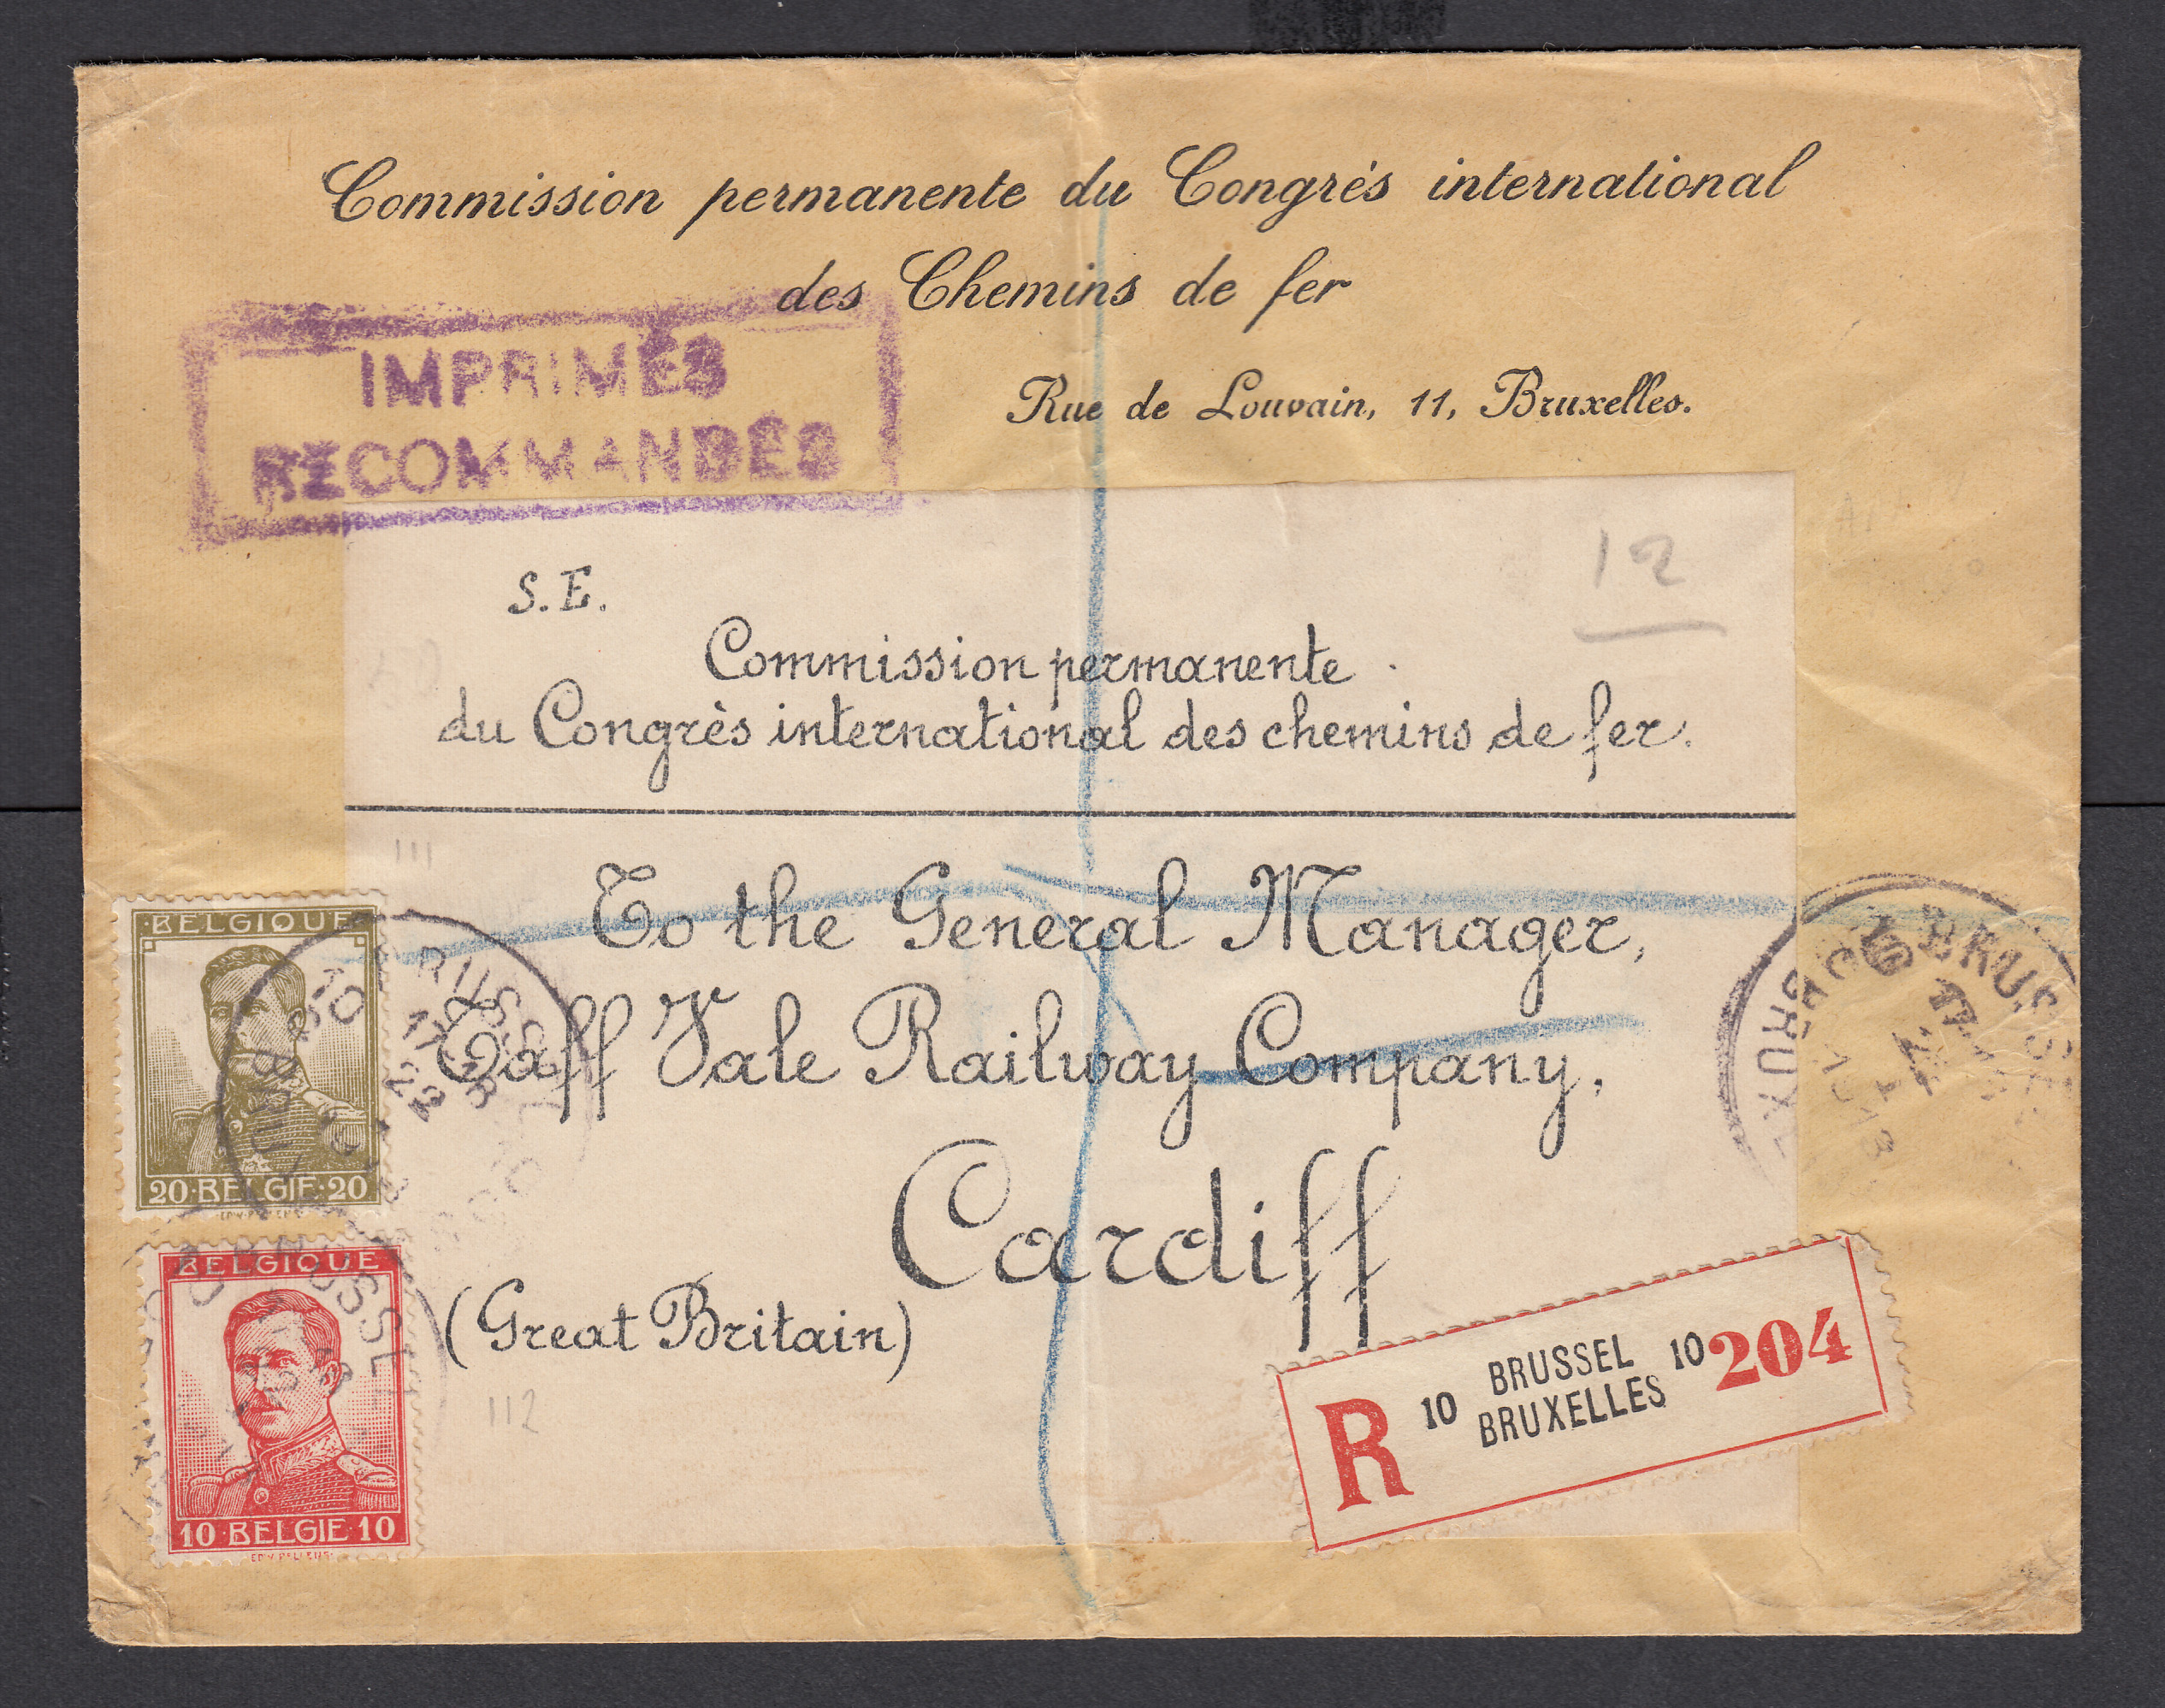 Commission permanente du Congrès international
des Chemins de fer
Rue de Louvain, 11, Bruxelles.
IMPRIMÉS
RECOMMANDÉS
12
S. E.
Commission permanente
du Congrès international des chemins de fer.
111
To the General Manager,
Taff Vale Railway Company,
Cardiff
(Great Britain)
112
BELGIQUE
20·BELGIE·20
BELGIQUE
10·BELGIE·10
R 10 BRUSSEL 10 204
BRUXELLES